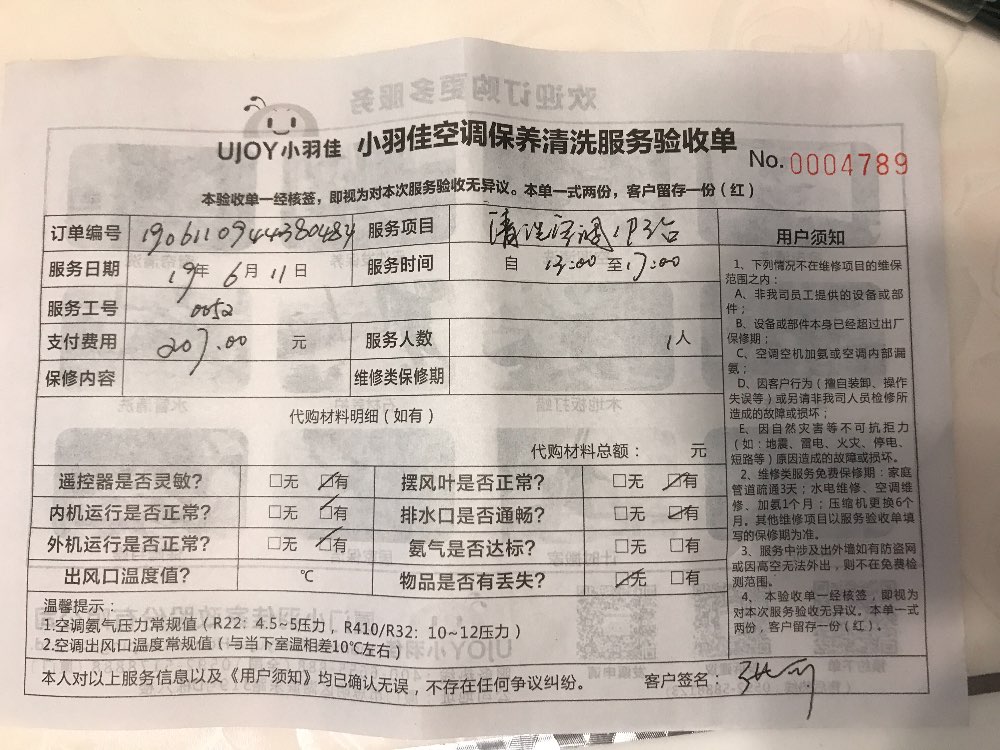 UJOY小羽佳 小羽佳空调保养清洗服务验收单 No. 0004789
本验收单一经核签，即视为对本次服务验收无异议。本单一式两份，客户留存一份（红）
订单编号 1906110944380484 服务项目 清洗空调1P3台
服务日期 19年 6月 11日 服务时间 自 13:00 至 17:00
服务工号 0052
支付费用 207.00 元 服务人数 1人
保修内容 维修类保修期
代购材料明细（如有）
代购材料总额： 元
遥控器是否灵敏? □无 □有 摆风叶是否正常? □无 □有
内机运行是否正常? □无 □有 排水口是否通畅? □无 □有
外机运行是否正常? □无 □有 氨气是否达标? □无 □有
出风口温度值? ℃ 物品是否有丢失? □无 □有
温馨提示：
1.空调氨气压力常规值（R22：4.5~5压力，R410/R32：10~12压力）
2.空调出风口温度常规值（与当下室温相差10℃左右）
本人对以上服务信息以及《用户须知》均已确认无误，不存在任何争议纠纷。 客户签名：
用户须知
1、下列情况不在维修项目的维保
范围之内：
A、非我司员工提供的设备或部
件；
B、设备或部件本身已经超过出厂
保修期；
C、空调空机加氨或空调内部漏
氨；
D、因客户行为（擅自装卸、操作
失误等）或另请非我司人员检修所
造成的故障或损坏；
E、因自然灾害等不可抗拒力
（如：地震、雷电、火灾、停电、
短路等）原因造成的故障或损坏。
2、维修类服务免费保修期：家庭
管道疏通3天；水电维修、空调维
修、加氨1个月；压缩机更换6个
月。其他维修项目以服务验收单填
写的保修期为准。
3、服务中涉及出外墙如有防盗网
或因高空无法外出，则不在免费检
测范围。
4、本验收单一经核签，即视为
对本次服务验收无异议。本单一式
两份，客户留存一份（红）。